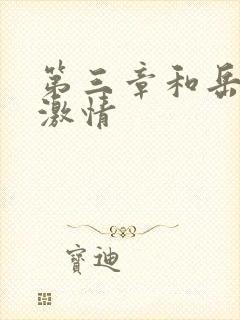 第三章和岳
激情
寶迪